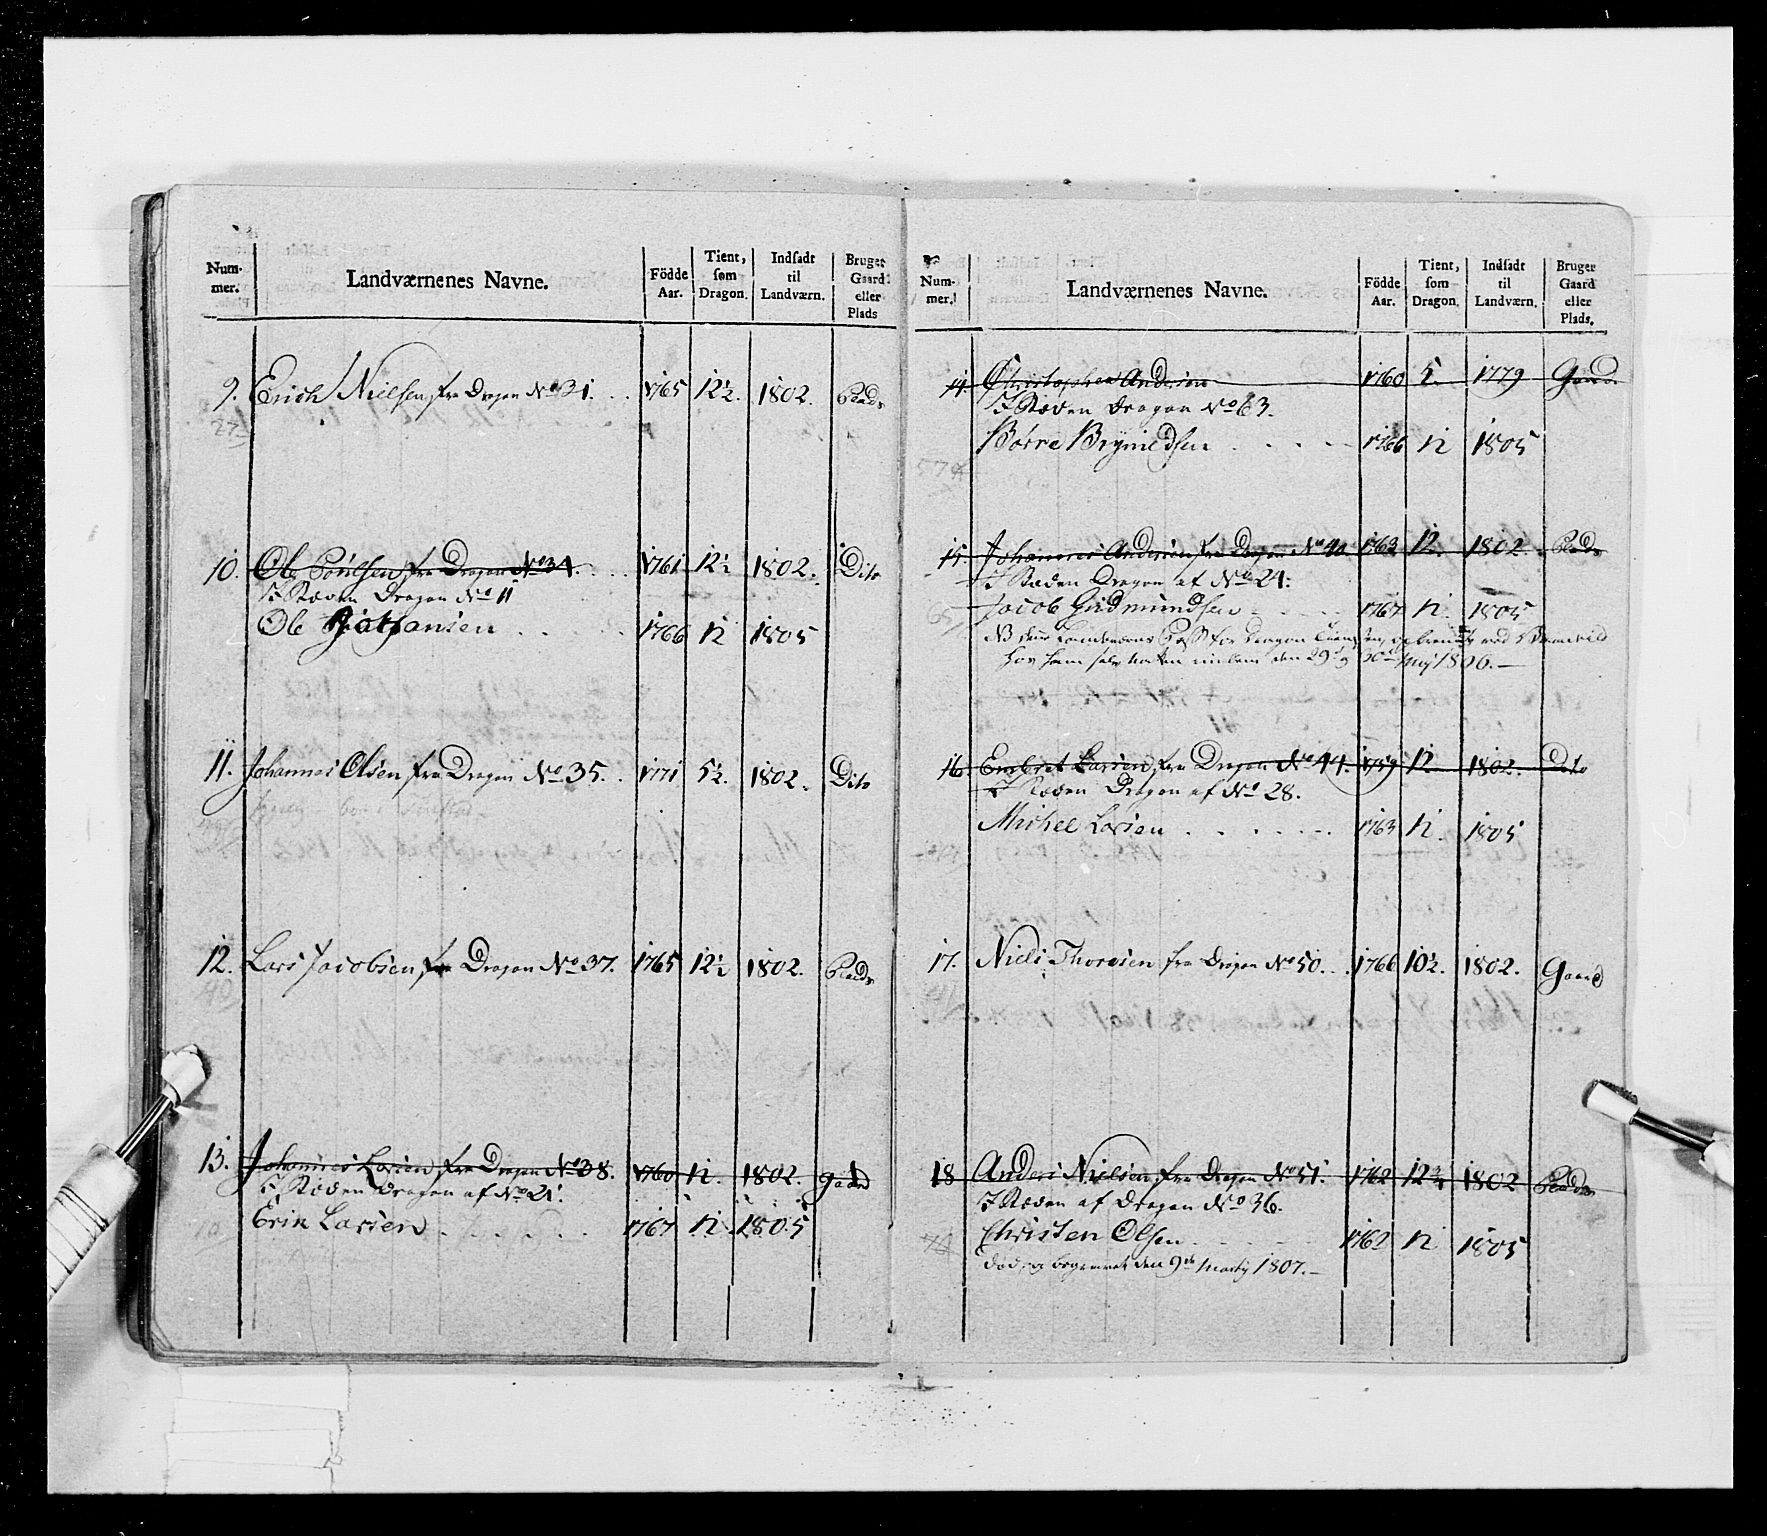 Num-
mer.
Landværnenes Navne.
Födde
Aar.
Tient,
som
Dragon.
Indsadt
til
Landværn.
Bruger
Gaard
eller
Plads
9. Erich Nielsen, fra Dragon No 31. 1765 12½. 1802. Plads
10. Ole Poulsen, fra Dragon No 34. 1761 12½ 1802. Dito
I Stæden Dragon No 11
Ole 1766 12 1805
11. Johannes Olsen, fra Dragon No 35. 1771 5½. 1802. Dito
12. Lars Jacobsen, fra Dragon No 37. 1765 12½ 1802. Plads
40
13. Johannes Larsen, fra Dragon No 38. 1760 12. 1802. gaard
I Stæden Dragon af No 21.
Erik Larsen 1767 12. 1805
Num-
mer.
Landværnenes Navne.
Födde
Aar.
Tient,
som
Dragon.
Indsadt
til
Landværn.
Bruger
Gaard
eller
Plads.
14. Christopher Andersen 1760 5. 1779 Gaard
I Stæden Dragon No 63.
Børre Brynildsen 1766 12 1805
15. Johannes Andersen fra Dragon No 40 1763 12. 1802 Plads
I Stæden Dragon af No 24.
Jacob Gudmundsen 1767 12. 1805
den 29de og 30te Maj 1806.
16. Embret Larsen, fra Dragon No 44. 1759 12 1802. Dito
I Stæden Dragon af No 28.
Michel Larsen 1763 12. 1805
17. Niels Thoresen fra Dragon No 50. 1766 10½. 1802. Gaard
18 Anders Nielsen, fra Dragon No 51. 1762 12¾ 1802 Plads
I Stæden af Dragon No 36.
Christen Olsen 1762 12 1805
død og begravet den 9de Martij 1807.